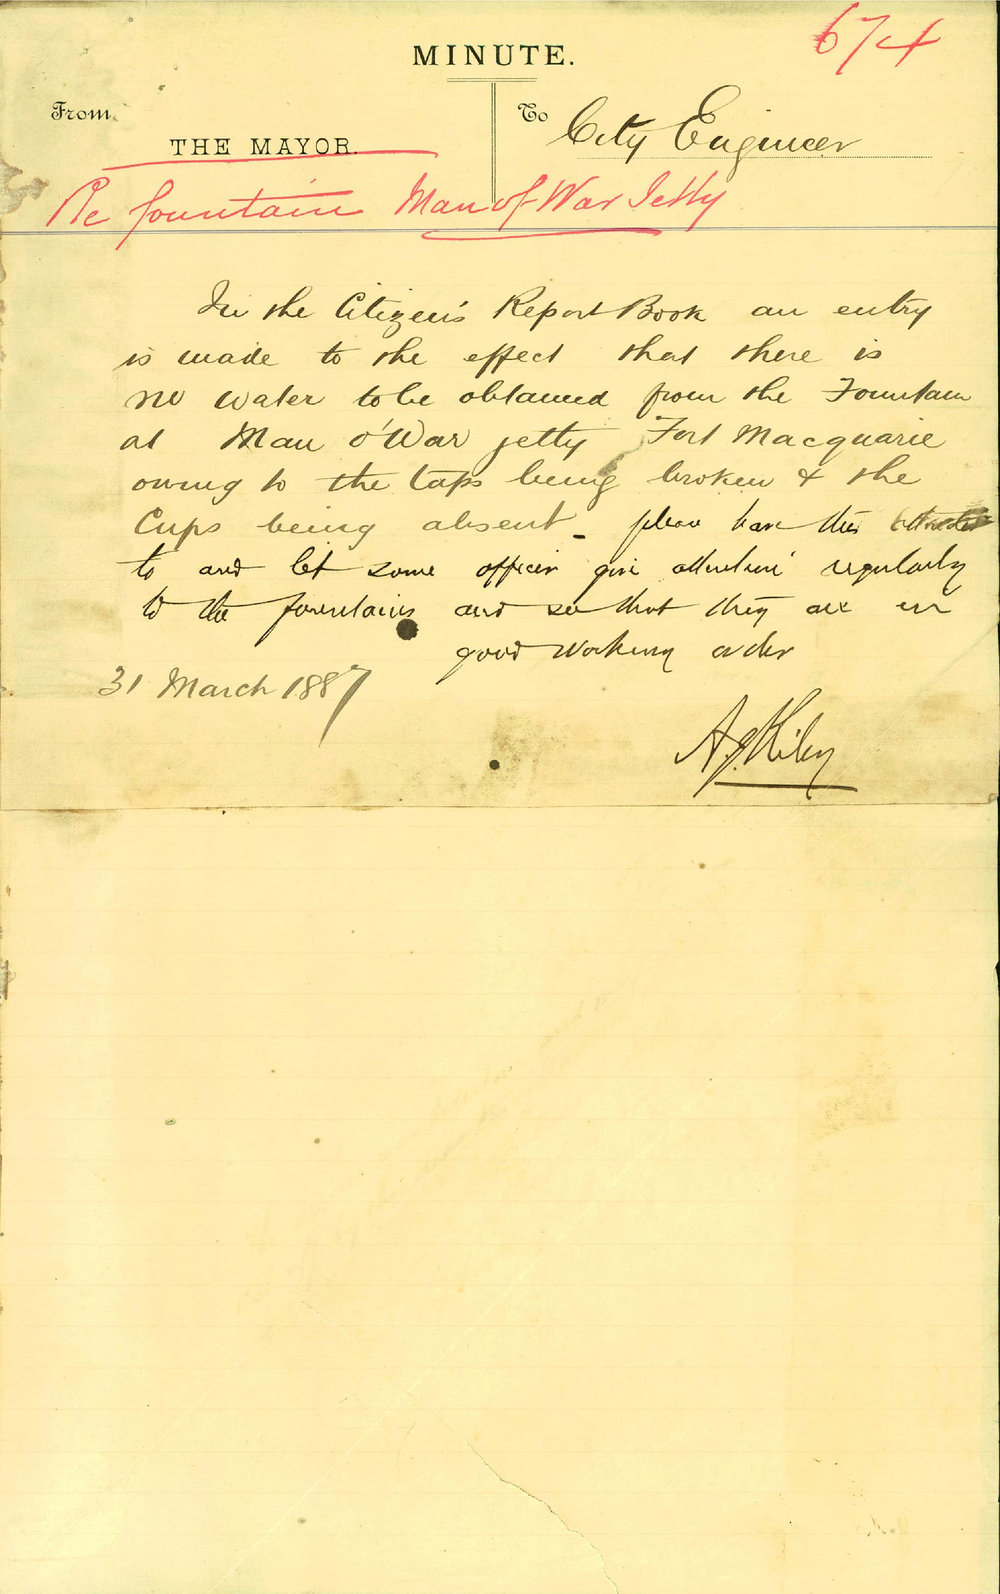 674
MINUTE.
From
THE MAYOR.
To City Engineer
Re fountain Man of War Jetty
In the Citizen's Report Book an entry
is made to the effect that there is
no water to be obtained from the Fountain
at Man o'War jetty Fort Macquarie
owing to the taps being broken & the
Cups being absent - please have this attended
to and let some officer give attention regularly
to the fountains and see that they are in
good working order
31 March 1887
A. J. Riley